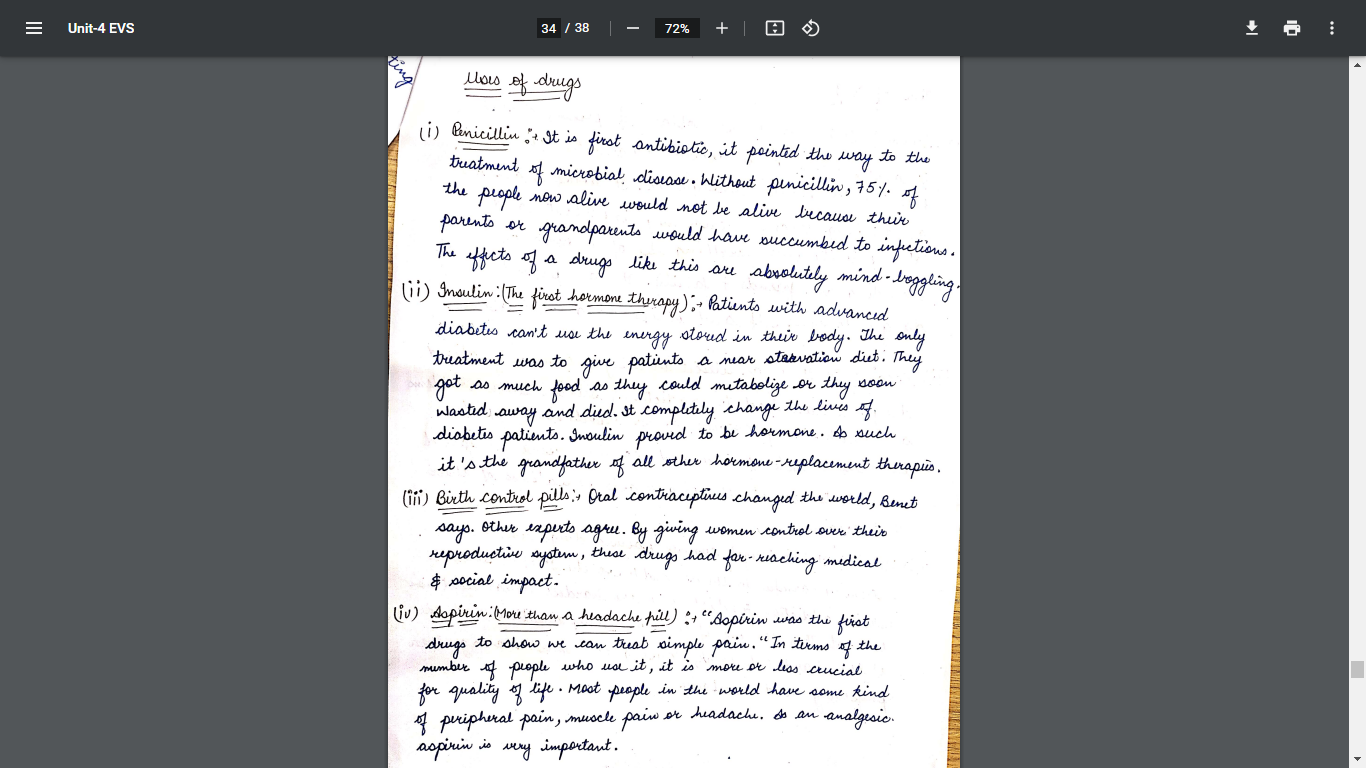 Unit-4 EVS
34 / 38
72%
ting
Uses of drugs
(i) Penicillin :→ It is first antibiotic, it pointed the way to the
treatment of microbial disease. Without penicillin, 75% of
the people now alive would not be alive because their
parents or grandparents would have succumbed to infections.
The effects of a drugs like this are absolutely mind-boggling.
(ii) Insulin:(The first hormone therapy) :→ Patients with advanced
diabetes can't use the energy stored in their body. The only
treatment was to give patients a near starvation diet. They
got as much food as they could metabolize or they soon
wasted away and died. It completely change the lives of
diabetes patients. Insulin proved to be hormone. As such
it's the grandfather of all other hormone-replacement therapies.
(iii) Birth control pills:→ Oral contraceptives changed the world, Benet
says. Other experts agree. By giving women control over their
reproductive system, these drugs had far-reaching medical
& social impact.
(iv) Aspirin:(More than a headache pill) :→ "Aspirin was the first
drugs to show we can treat simple pain. "In terms of the
number of people who use it, it is more or less crucial
for quality of life. Most people in the world have some kind
of peripheral pain, muscle pain or headache. As an analgesic.
aspirin is very important.